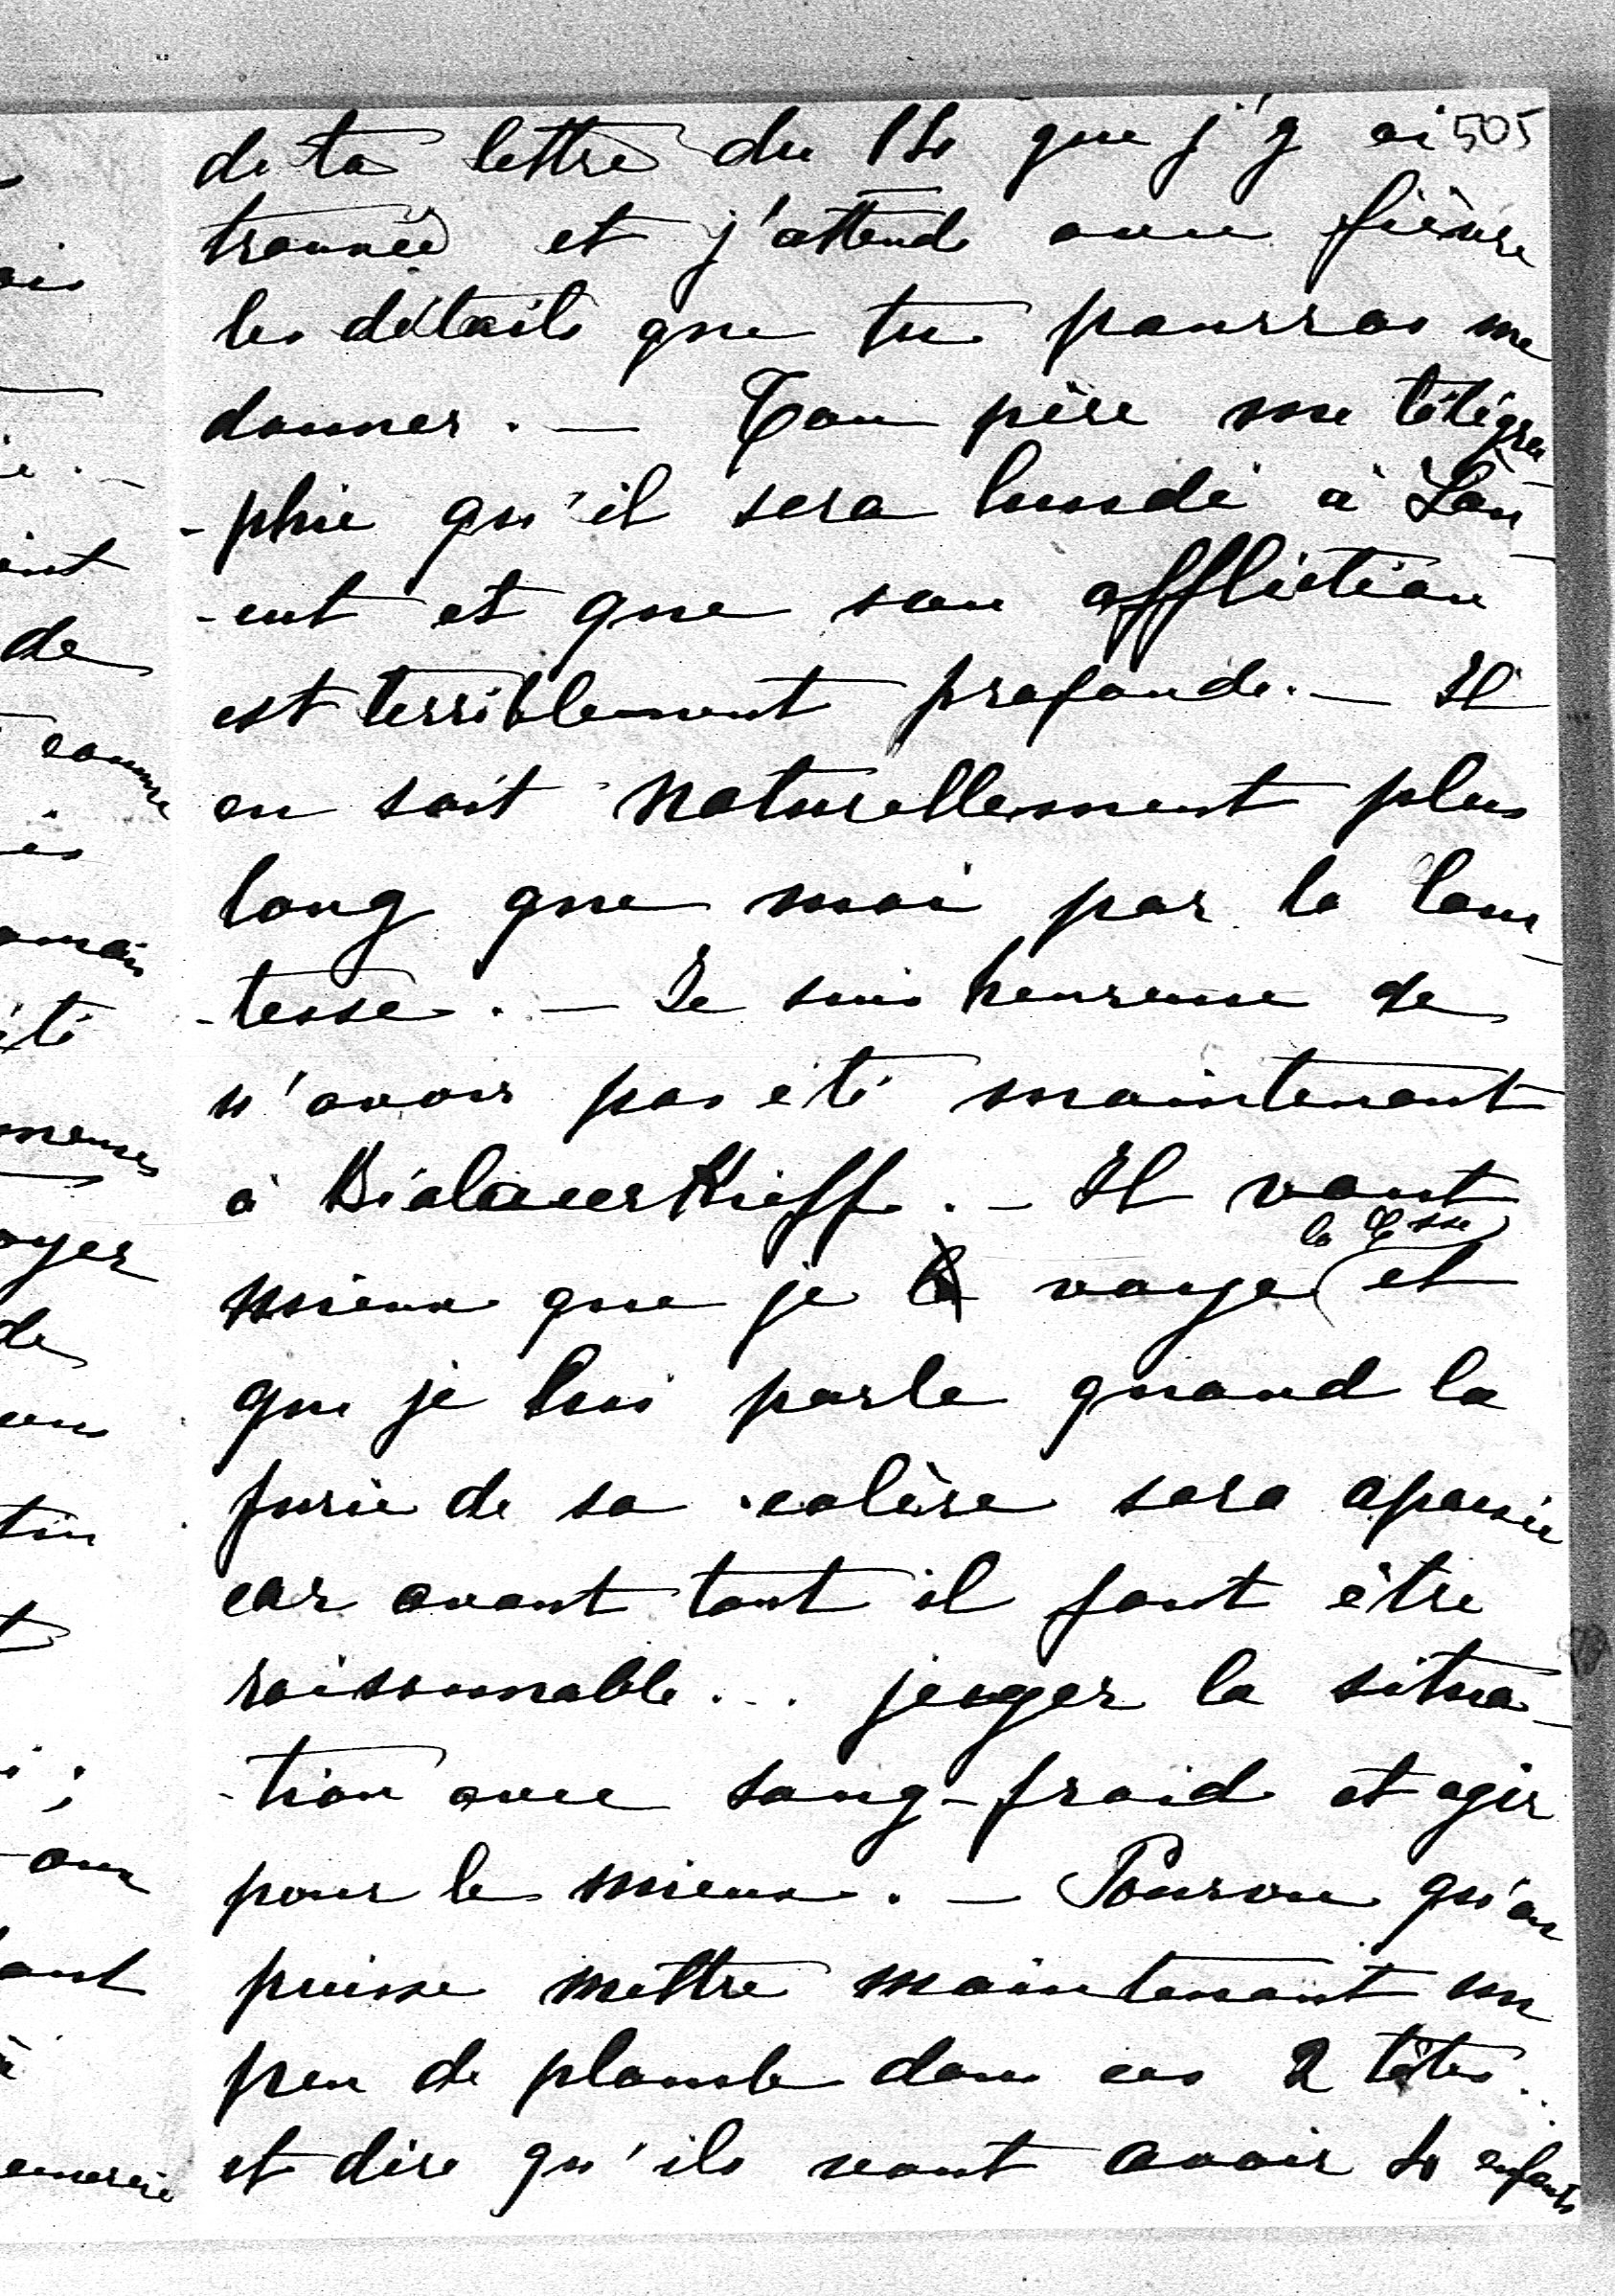 505
de ta lettre du 14 que j'y ai
trouvée et j'attends avec fièvre
les détails que tu pourras me
donner. — Ton père me télégra
-phie qu'il sera lundi à Lan
-cut et que son affliction
est terriblement profonde. — Il
en sait naturellement plus
long que moi par la Com-
-tesse. — Je suis heureuse de
n'avoir pas été maintenant
à Bialacerkieff. — Il vaut
la Csse
mieux que je voye et
que je lui parle quand la
furie de sa colère sera apaisée
car avant tout il faut être
raisonnable... juger la situa-
-tion avec sang-froid et agir
pour le mieux. — Pourvu qu'on
puisse mettre maintenant un
peu de plomb dans ces 2 têtes...
et dire qu'ils vont avoir 4 enfants